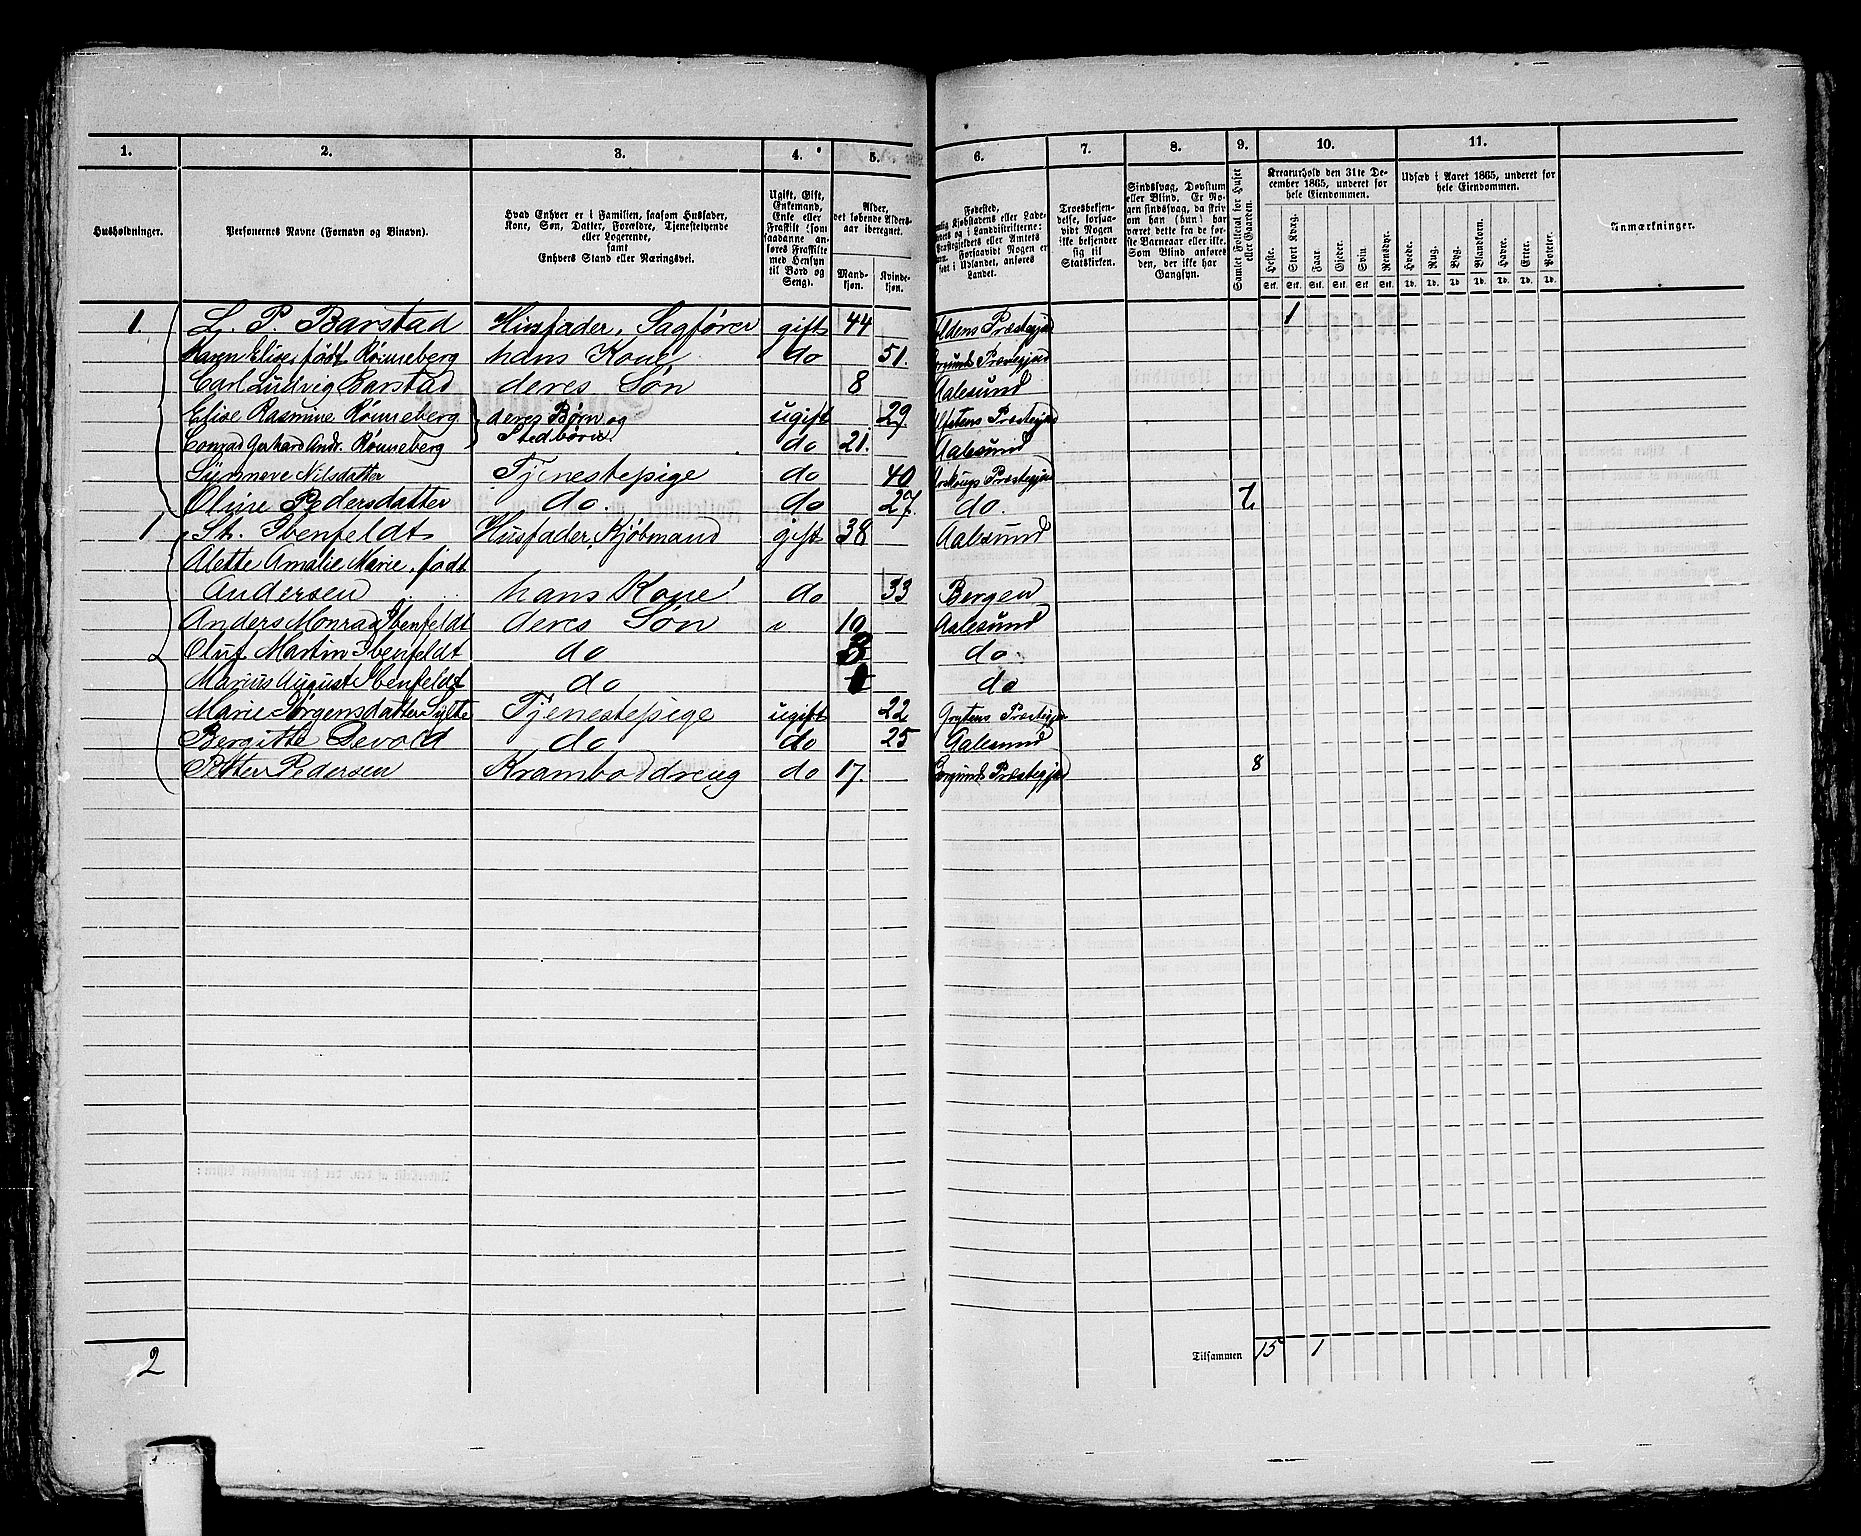 1. 2. 3. 4. 5. 6. 7. 8. 9. 10. 11.
Husholdninger.
Personernes Navne (Fornavn og Binavn).
Hvad Enhver er i Familien, saasom Husfader, Kone, Søn, Datter, Forældre, Tjenestetyende eller Logerende, samt Enhvers Stand eller Næringsvei.
Ugift, Gift, Enkemand, Enke eller Fraskilt (som saadanne anføres Fraskilte med Hensyn til Bord og Seng).
Alder, det løbende Alders-aar iberegnet.
Mand-kjøn. Kvinde-kjøn.
Fødested, Kjøbstadens eller Lade- i Landdistrikterne: eller Amtets Forsaavidt Nogen er født i Udlandet, anføres Landet.
Troesbekjendelse, forsaavidt Nogen ikke bekjender sig til Statskirken.
Sindssvag, Døvstum eller Blind. Er Nogen sindssvag, da skrives om han (hun) har været dette fra de første Barneaar eller ikke. Som Blind anføres den, der ikke har Gangsyn.
Samlet Folketal for Huset eller Gaarden.
Kreaturhold den 31te December 1865, underet for hele Eiendommen.
Heste. Stort Kvæg. Faar. Gjeder. Sviin. Rensdyr.
Stk. Stk. Stk. Stk. Stk. Stk.
Udsæd i Aaret 1865, underet for hele Eiendommen.
Hvede. Rug. Byg. Blandkorn. Havre. Erter. Poteter.
Td. Td. Td. Td. Td. Td. Td.
Anmærkninger.
1. L. P. Barstad Husfader, Sagfører gift 44 oldens Præstegjed 1
Karen Elise, født Rønneberg hans Kone do 51. orgunds Præstegjed
Carl Ludvig Barstad deres Søn 8 Aalesund
Elise Rasmine Rønneberg deres Børn og ugift 29.
Conrad Gerhard Andr. Rønneberg Stedbørn do 21. Aalesund
Sünneve Nilsdatter Tjenestepige do 40 Præstegjed
Oline Pedersdatter do. do 27. do. 7
1 St. Ibenfeldt Husfader, Kjøbmand gift 38 Aalesund
Alette Amalie Marie, født
Andersen hans Kone do 33 Bergen
Anders Monrad Ibenfeldt deres Søn 10 Aalesund
Oluf Martin Ibenfeldt do 3 do.
Marius August Ibenfeldt do 1 do
Marie Jørgensdatter Sylte Tjenestepige ugift 22 Grytens Præstegje
Bergitte Devold do do 25 Aalesund
Petter Pedersen Kramboddreng do 17. Borgunds Præstegjed 8
2 Tilsammen 15 1